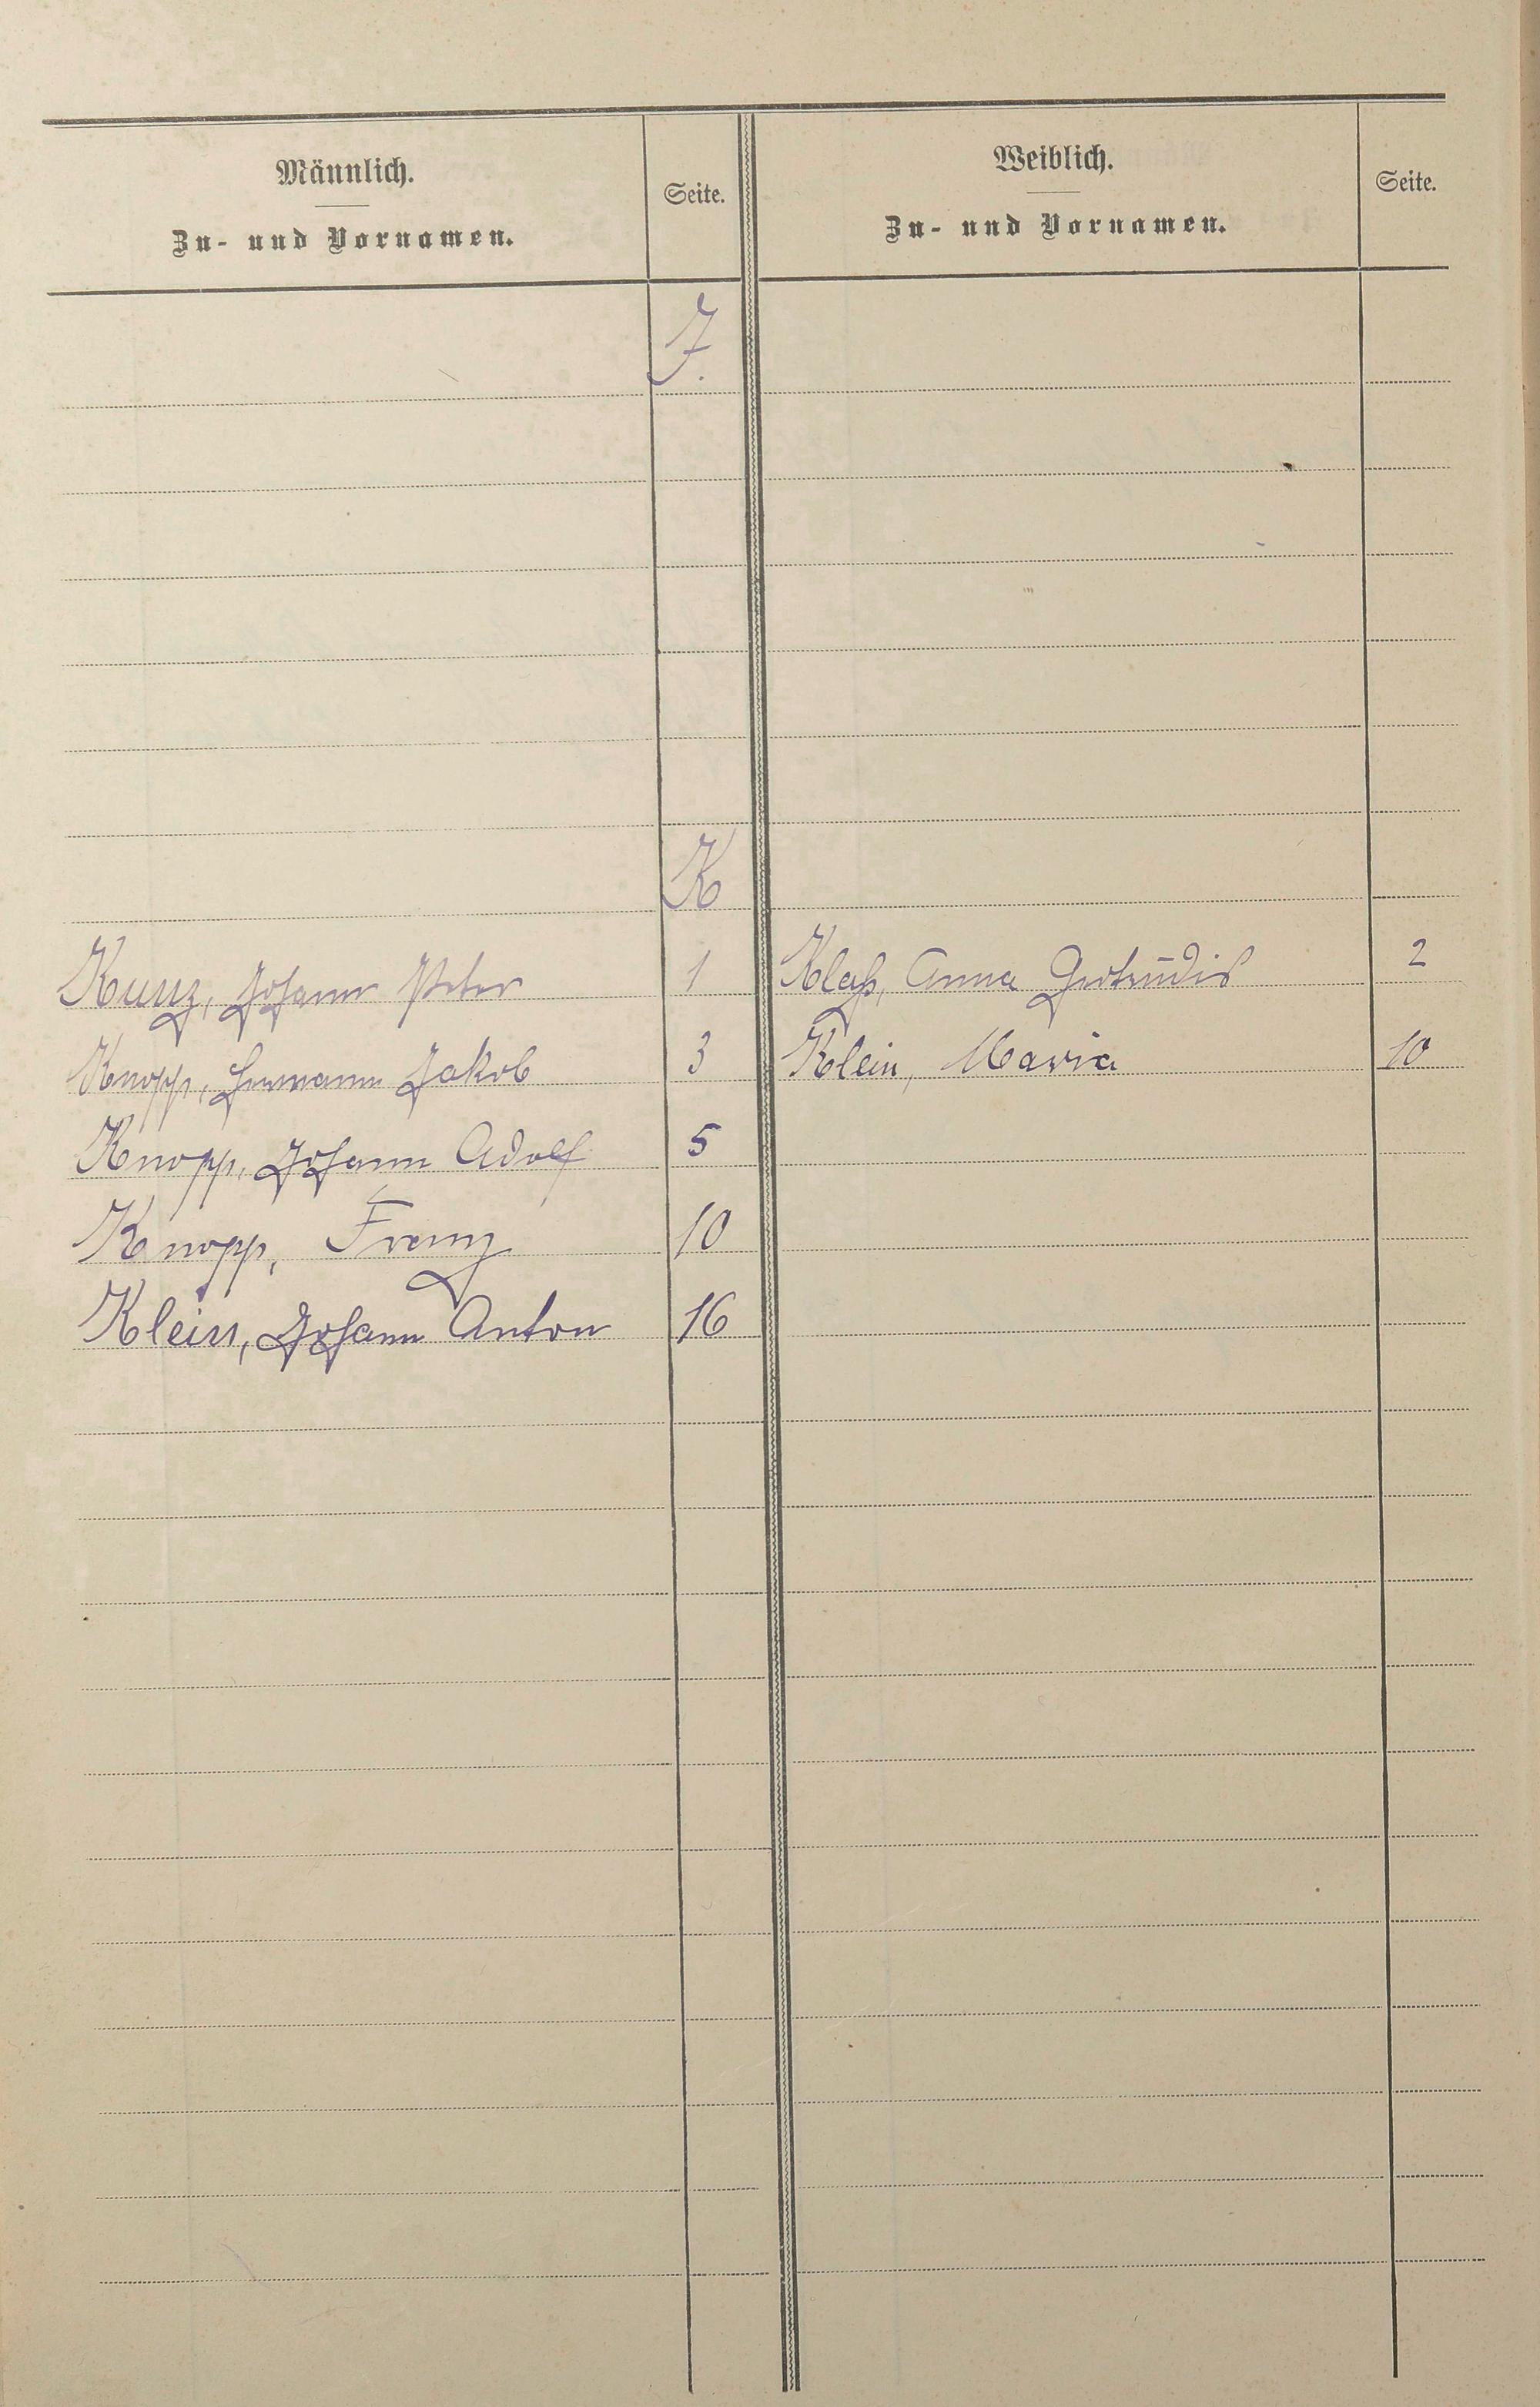 Männlich.
Zu- und Vornamen.
Seite.
Weiblich.
Zu- und Vornamen.
Seite.
J.
K
Kunz, Johann Peter 1
Klaß, Anna Gertrudis 2
Knopp, Hermann Jakob 3
Klein, Maria 10
Knopp, Johann Adolf 5
Knopp, Franz 10
Klein, Johann Anton 16